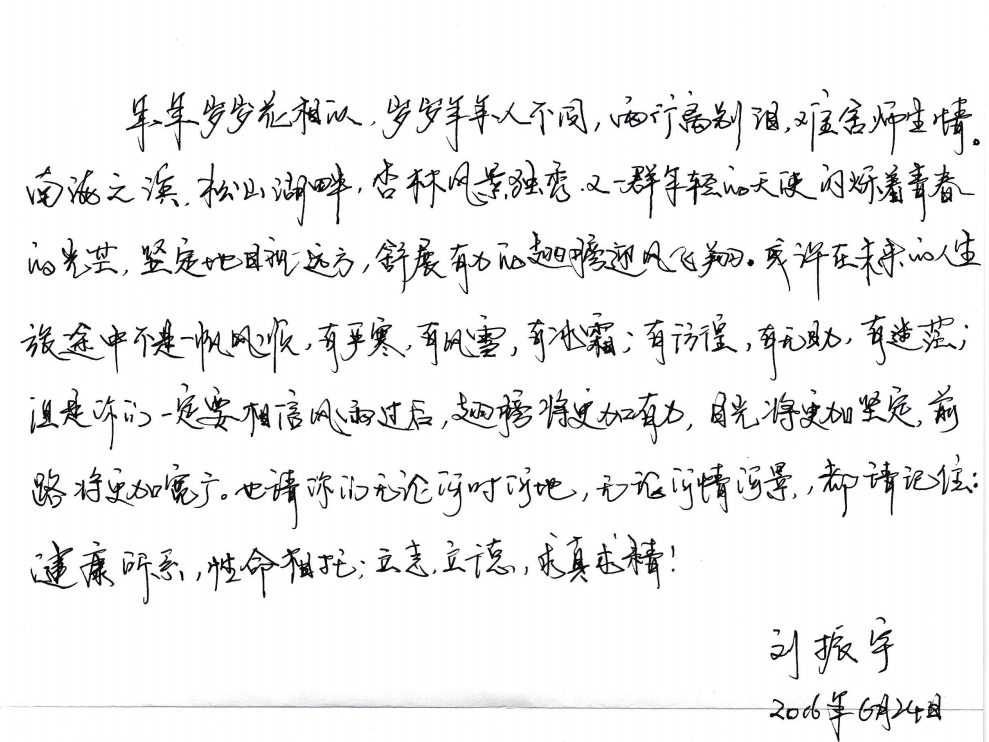 年年岁岁花相似，岁岁年年人不同，两行离别泪，难舍师生情。
南海之滨，松山湖畔，杏林风景独秀，又一群年轻的天使闪烁着青春
的光芒，坚定地目视远方，舒展有力的翅膀迎风飞翔。或许在未来的人生
旅途中不是一帆风顺，有严寒，有风雪，有冰霜；有彷徨，有无助，有迷茫；
但是你们一定要相信风雨过后，翅膀将更加有力，目光将更加坚定，前
路将更加宽广。也请你们无论何时何地，无论何情何景，都请记住：
健康所系，性命相托；立志立德，求真求精！
刘振宇
2006年6月24日